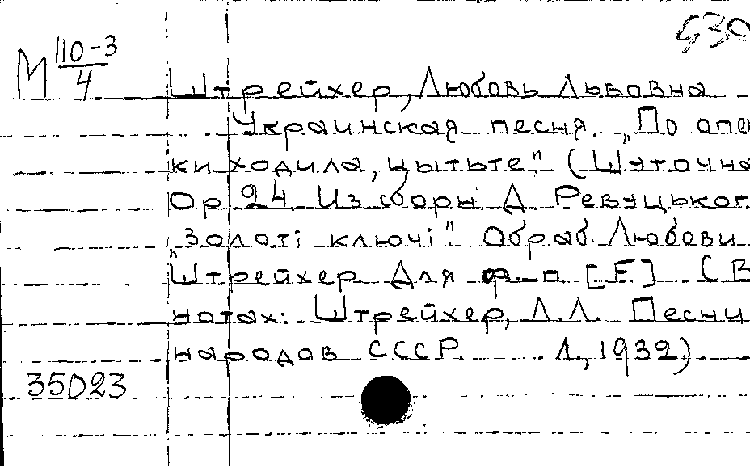 530
М 110-3/4
Штрейхер, Любовь Львовна
Украинская песня. „По опе
ки ходила, цытьте," (Шуточна
Ор 24 Из сборн Д Ревуцьког
„Золоті ключі" Обраб. Любови
Штрейхер Для ф-п [F.] (В
нотах: Штрейхер, Л.Л. Песни
народов СССР. Л., 1932)
35023